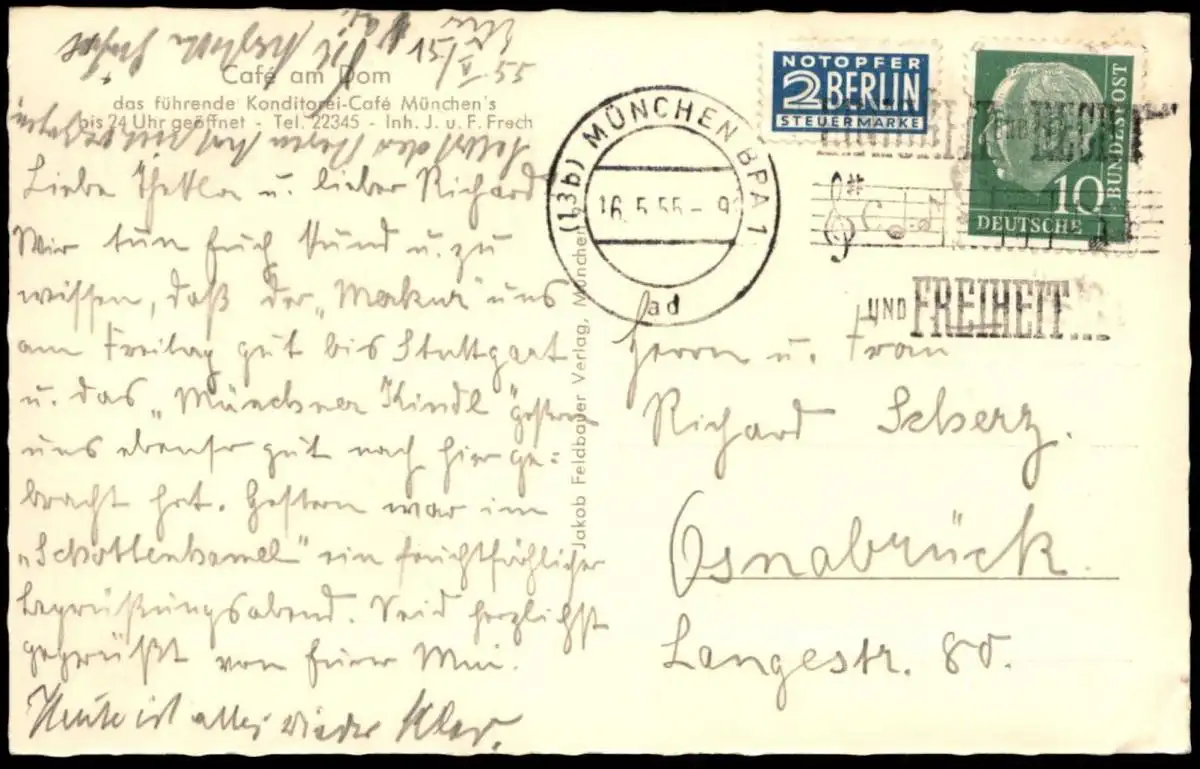 15/V 55
Café am Dom
das führende Konditorei-Café München's
bis 24 Uhr geöffnet - Tel. 22345 - Inh. J. u. F. Frech
Liebe Thekla u. lieber Richard
Wir tun Euch kund u. zu
wissen, daß der „Merkur" uns
am Freitag gut bis Stuttgart
u. das „Münchner Kindl" gestern
uns ebenso gut nach hier ge=
bracht hat. Gestern war im
„Schottenhamel" ein feuchtfröhlicher
Begrüßungsabend. Seid herzlichst
gegrüßt von Eurer Mui.
Heute ist alles wieder klar.
Jakob Feldbauer Verlag, München
(13b) MÜNCHEN BPA 1
16.5.55-9
ad
NOTOPFER
2 BERLIN
STEUERMARKE
10
DEUTSCHE
BUNDESPOST
EINIGKEIT UND RECHT
UND FREIHEIT...
Herrn u. Frau
Richard Scherz.
Osnabrück.
Langestr. 80.